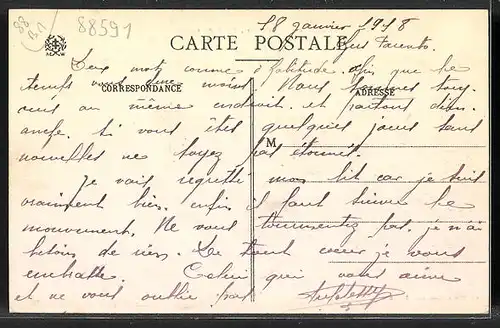 88
B.N
88591
18 janvier 1918
CARTE POSTALE
Chers Parents.
Deux mots comme d'habitude. afin que le
temps vous dure moins. Nous sommes touj-
CORRESPONDANCE
ADRESSE
ours au même endroit. et partons
Si vous êtes quelques jours sans
M
nouvelles ne soyez pas étonné.
Je vais regretté mon lit car je suis
vraiment bien. enfin il faut suivre le
mouvement. Ne vous tourmentez pas. je n'ai
besoin de rien. De tout cœur je vous
embrasse. Celui qui vous aime
et ne vous oublie pas